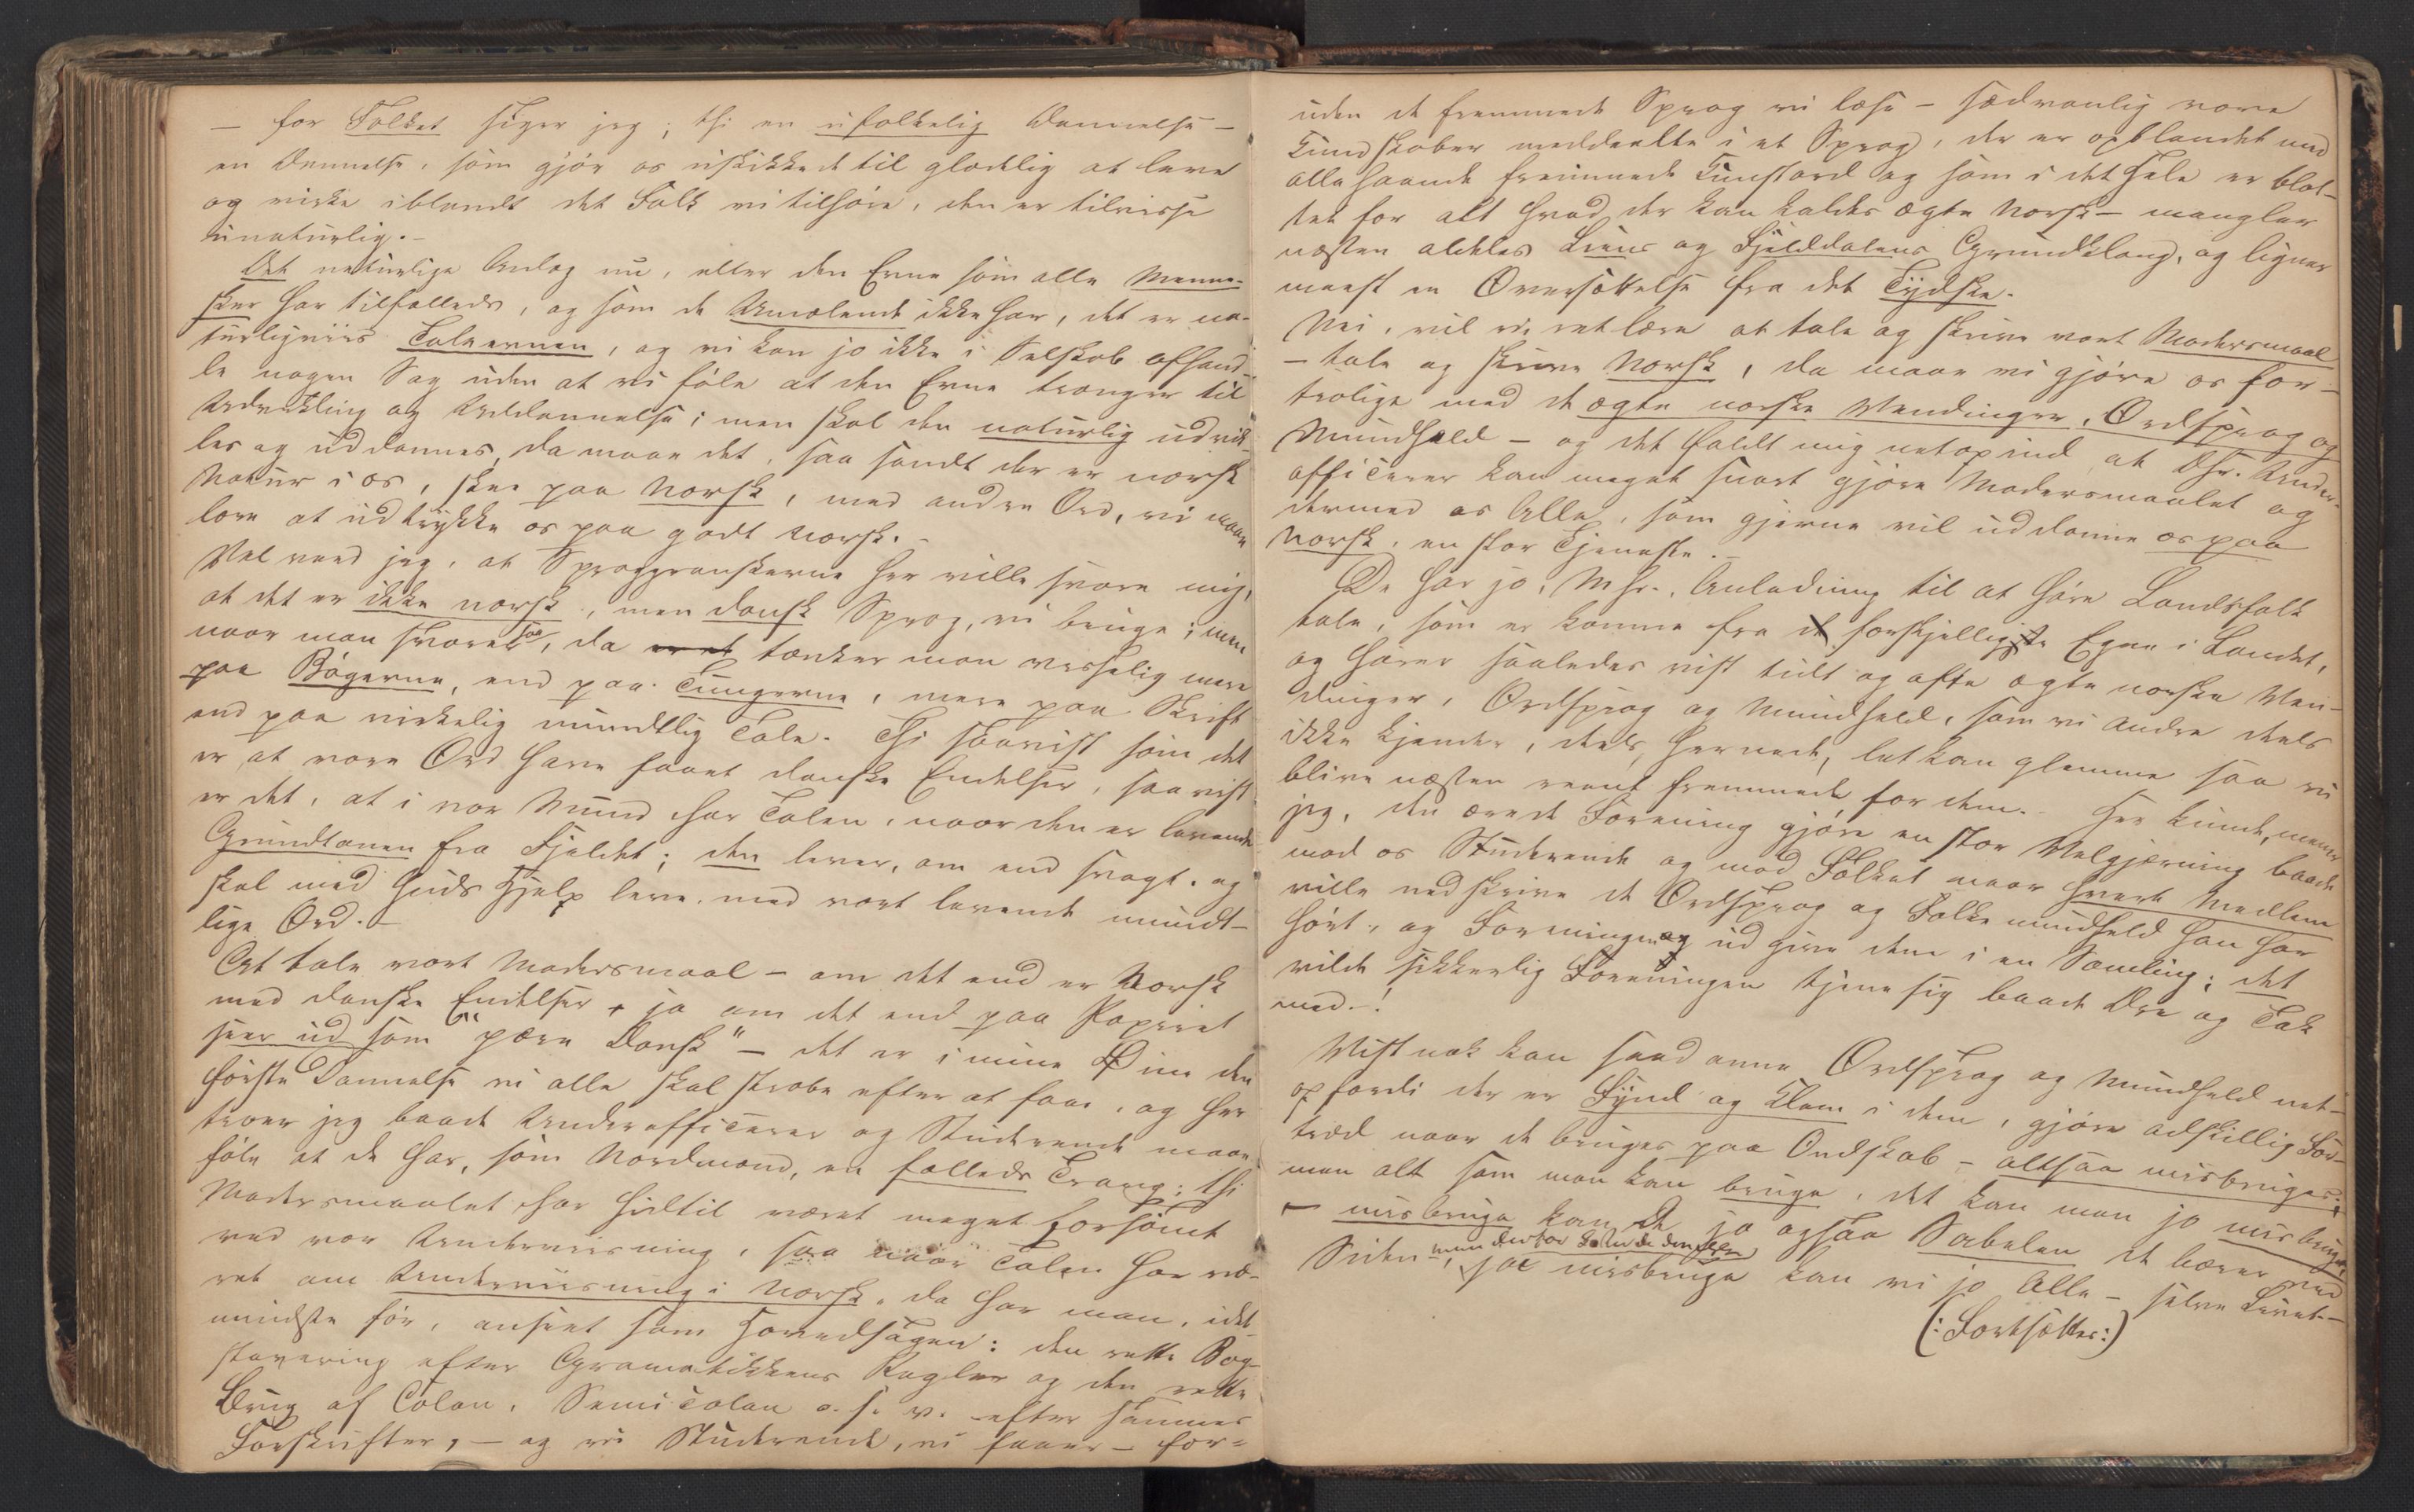 — for Folket siger jeg; thi en ufolkelig Dannelse —
en Dannelse, som gjör os uskikkede til glædelig at leve
og virke iblandt det Folk vi tilhöre, den er tilvisse
unaturlig. —
Det naturlige Anlæg nu, eller den Evne som alle Menne-
sker har tilfælleds, og som de Umælende ikke har, det er na-
turligviis Taleevnen, og vi kan jo ikke i Selskab afhand-
le nogen Sag uden at vi föle at den Evne trænger til
Udvikling og Uddannelse; men skal den naturlig udvik-
les og uddannes, da maae det, saa sandt der er norsk
Natur i os, skee paa Norsk, med andre Ord, vi maae
lære at udtrykke os paa godt Norsk. —
Vel veed jeg, at Sproggranskerne her ville svare mig,
at det er ikke norsk, men dansk Sprog, vi bruge; men
naar man svarer saa, da er et tænker man visselig mere
paa Bögerne, end paa Tungerne, mere paa Skrift
end paa virkelig mundtlig Tale. Thi saavist som det
er at vore Ord have faaet danske Endelser, saa vist
er det, at i vor Mund har Talen, naar den er levende
Grundtonen fra Fjeldet; den lever, om end svagt, og
skal med Guds Hjelp leve med vort levende mundt-
lige Ord. —
At tale vort Modersmaal — om det end er Norsk
med danske Endelser, ja om det end paa Papiret
seer ud som "pære Dansk" — det er i mine Øine den
förste Dannelse vi alle skal stræbe efter at faae, og her
troer jeg baade Underofficerer og Studerende maae
föle at de har, som Nordmænd, en fælleds Trang; thi
Modersmaalet har hidtil været meget forsömt
ved vor Underviisning, saa naar Talen har væ-
ret om Underviisning i Norsk, da har man, idet-
mindste för, anseet som Hovedsagen: den rette Bog-
stavering efter Gramatikkens Regler og den rette
Brug af Colon, Semicolon o. s. v. efter sammes
Forskrifter, — og vi Studerende, vi faaer — for-
uden de fremmede Sprog vi læse — sædvanlig vore
Kundskaber meddeelte i et Sprog, der er opblandet med
allehaande fremmede Kunstord og som i det Hele er blot-
tet for alt hvad der kan kaldes ægte Norsk — mangler
næsten aldeles Liens og Fjelddalens Grundklang, og ligner
meest en Oversættelse fra det Tydske.
Nei, vil vi ret lære at tale og skrive vort Modersmaal
— tale og skrive Norsk, da maae vi gjöre os for-
trolige med de ægte norske Vendinger, Ordsprog og
Mundheld — og det faldt mig netop ind at Dhr. Under-
officerer kan meget snart gjöre Modersmaalet og
dermed os Alle, som gjerne vil uddanne os paa
Norsk, en stor Tjeneste. —
De har jo, M hr., Anledning til at höre Landsfolk
tale, som er komne fra de forskjelligste Egne i Landet,
og hörer saaledes vist tidt og ofte ægte norske Ven-
dinger, Ordsprog og Mundheld, som vi andre deels
ikke kjender, deels, hernede, let kan glemme saa vi
blive næsten reent fremmede for dem. Her kunde, mener
jeg, den ærede Forening gjöre en stor Velgjerning baade
mod os Studerende og mod Folket naar hvert Medlem
ville nedskrive de Ordsprog og Folkemundheld han har
hört, og Foreningen udgive dem i en Samling; det
vilde sikkerlig Foreningen tjene sig baade Ære og Tak
med. —!
Vist nok kan saadanne Ordsprog og Mundheld net-
op fordi der er Fynd og Klem i dem, gjöre adskillig For-
træd naar de bruges paa Ondskab — altsaa misbruges;
men alt som man kan bruge, det kan man jo misbruge,
— misbruge kan De jo ogsaa Sabelen de bærer ved
Siden —, men derfor ja misbruge kan vi jo Alle — selve Livet. —
(: Fortsættes :)